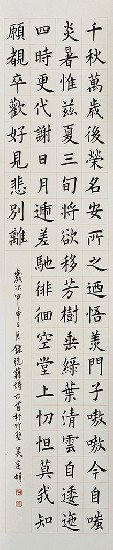 千秋萬歲後榮名安所之悟羨門子噭噭今自嗤
炎暑惟茲夏三旬將欲移芳樹垂綠葉清雲自逶迤
四時更代謝日月遞差馳徘徊空堂上忉怛莫我知
願覩卒歡好見悲別離
歲次甲申